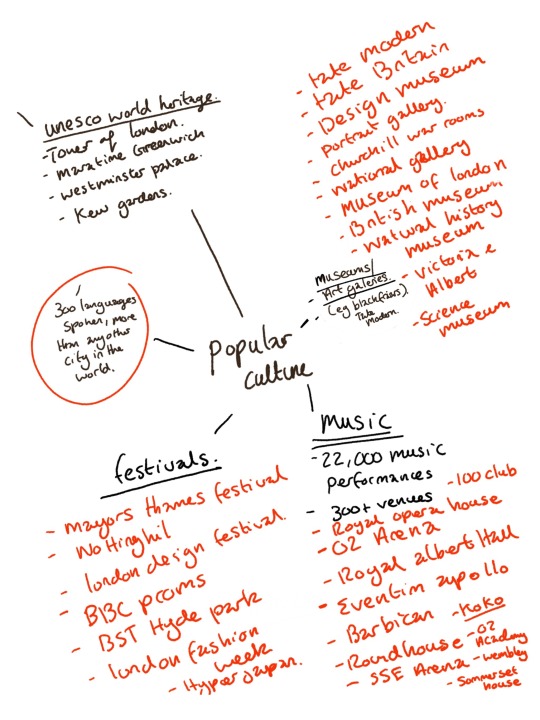 unesco world heritage.
-Tower of london.
- maratime Greenwich
- westminster palace.
- Kew gardens.
300 languages
spoken, more
than any other
city in the
world.
popular
culture
museums/
- Art galeries.
(eg blackfriars).
Tate
modern.
- tate modern
- tate Britain
- Design museum
- portrait gallery.
- churchill war rooms
- national gallery
- museum of london
- British museum
- natural history
museum
- victoria &
Albert
- Science
museum
festivals.
- mayors thames festival
- Nottinghil
- london design festival.
- BBC proms
- BST Hyde park
- london fashion
week
- Hyper japan.
music
- 22,000 music
performances
- 300+ venues
- 100 club
- Royal opera house
- O2 Arena
- Royal albert Hall
- Eventim apollo
- Barbican
- KoKo
- Roundhouse
- O2
Academy
- SSE Arena
- wembley
- Sommerset
house